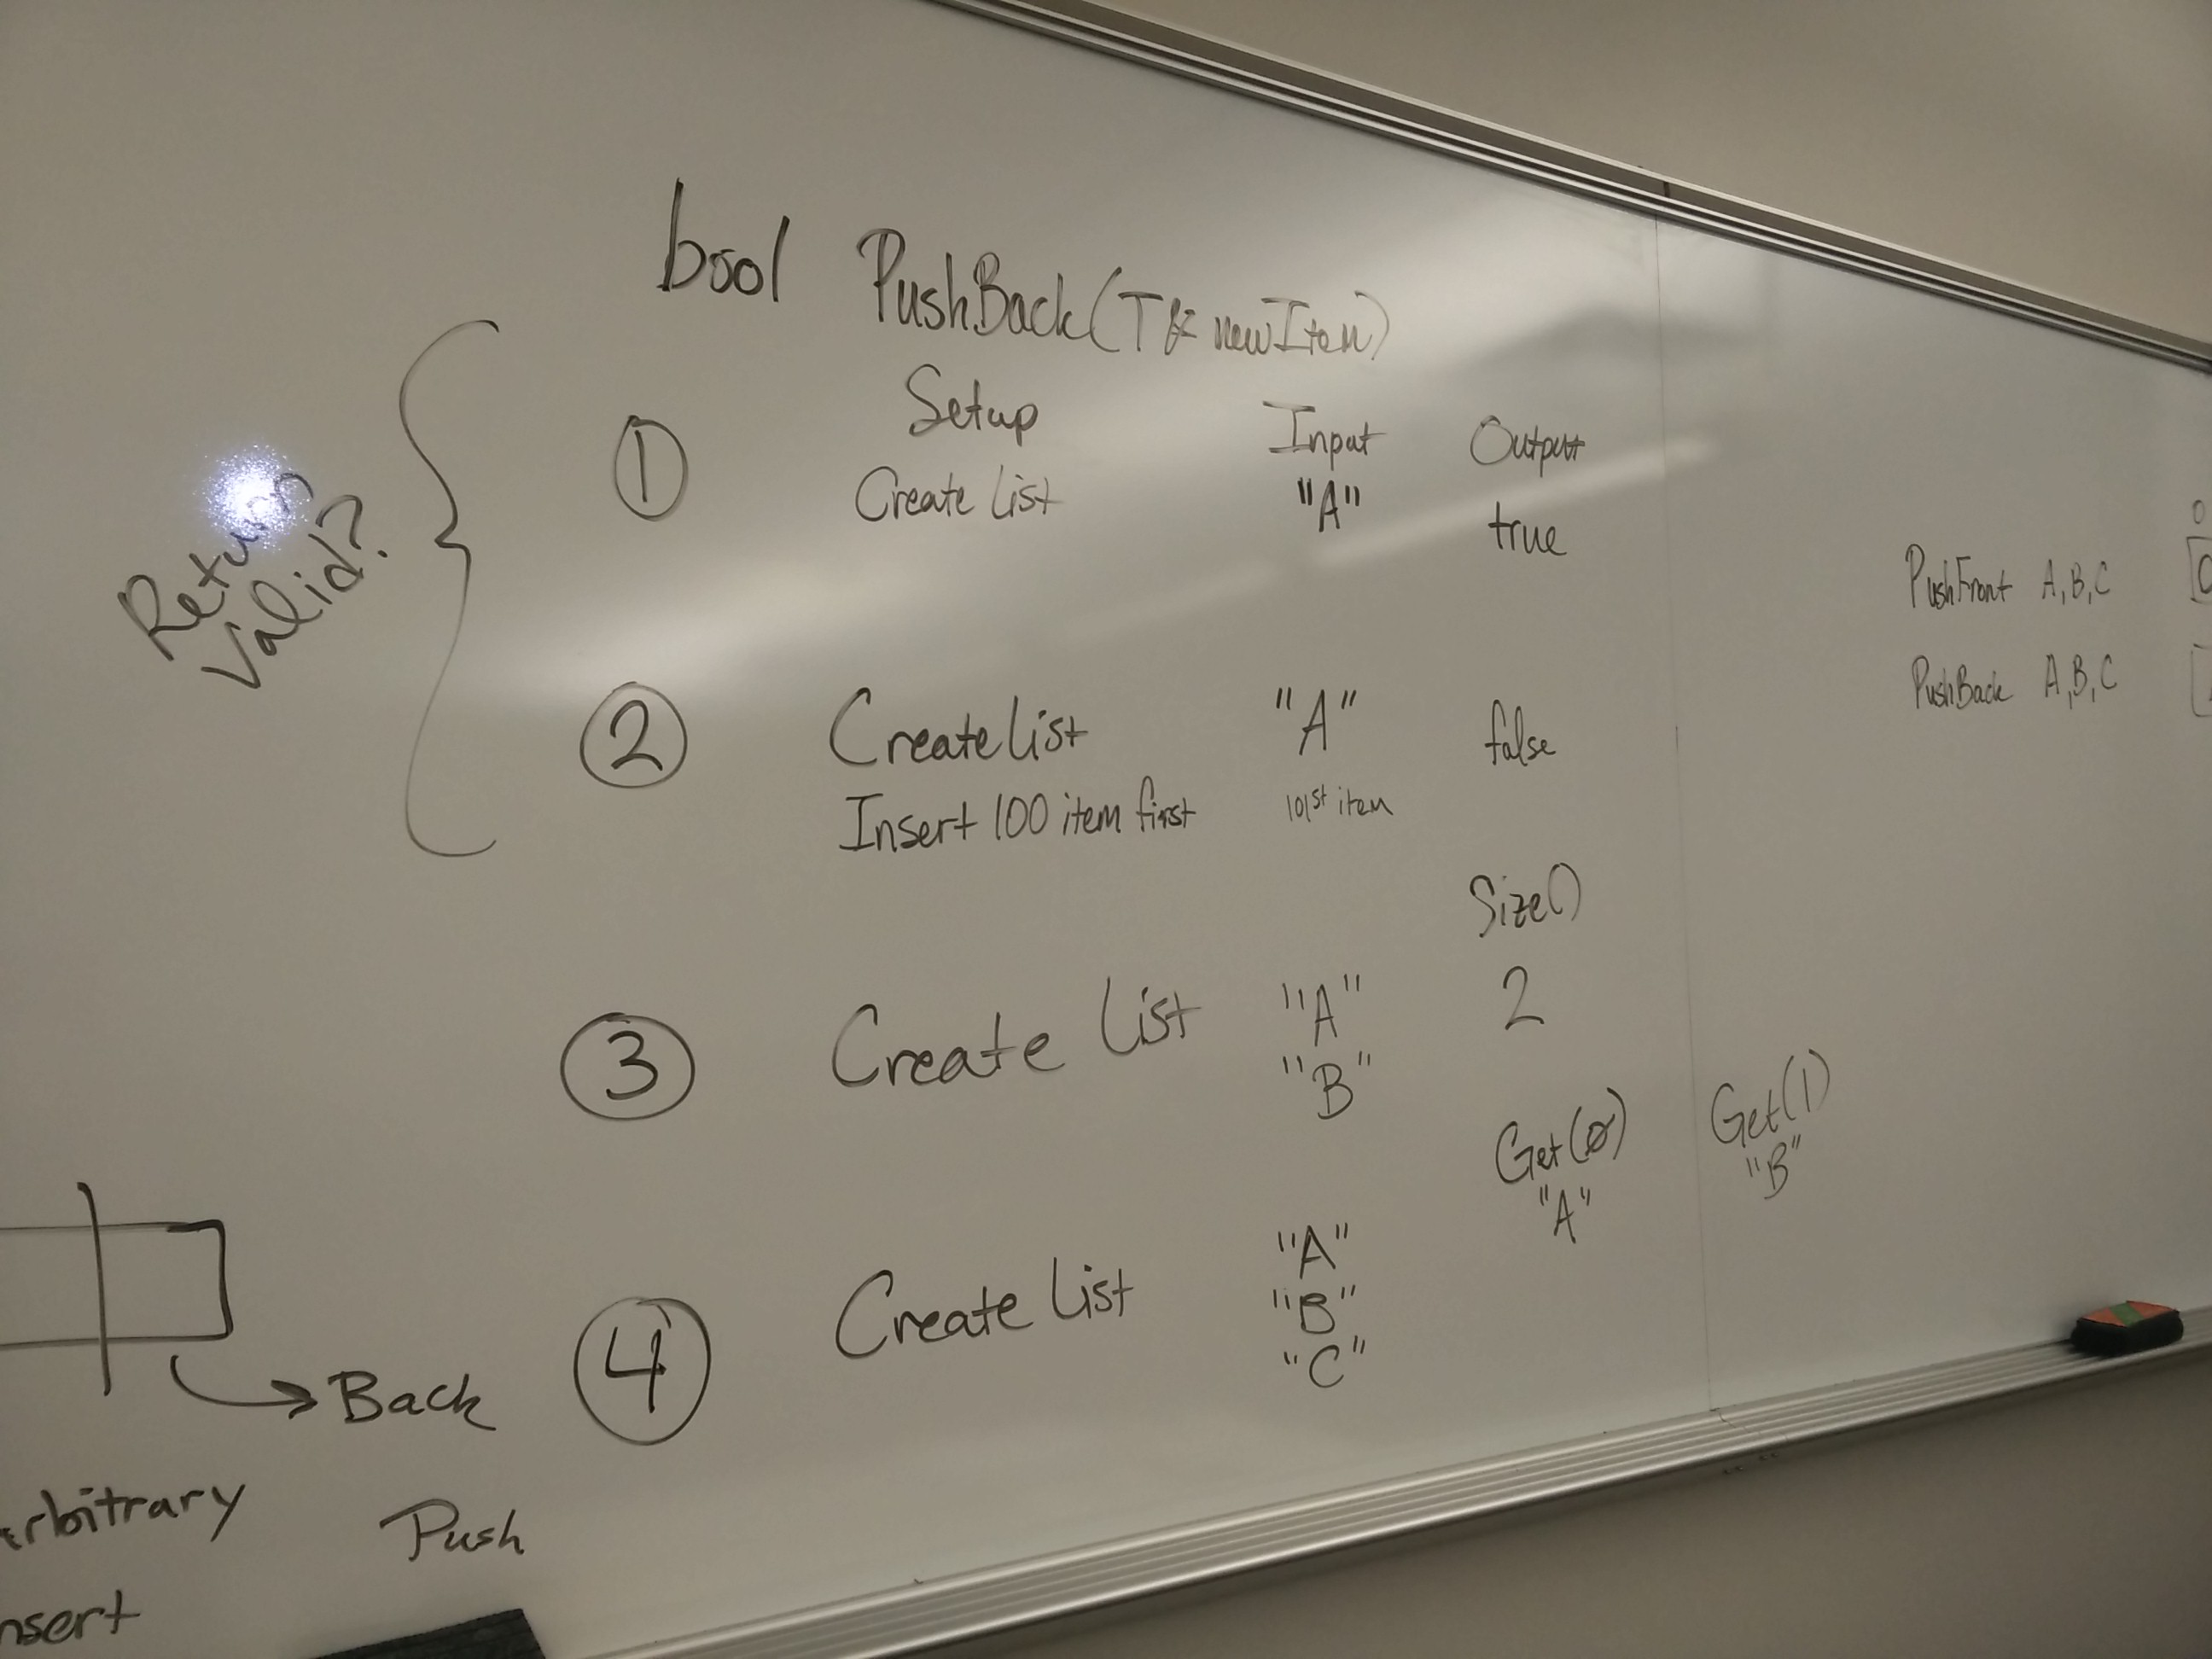 bool PushBack(T& newItem)
Return
Valid?
Setup Input Output
① Create List "A" true
② Create list "A" false
Insert 100 item first 101st item
Size()
③ Create list "A" 2
"B"
Get(0) Get(1)
"A" "B"
④ Create list "A"
"B"
"C"
PushFront A,B,C
PushBack A,B,C
0
C
Back
rbitrary Push
nsert